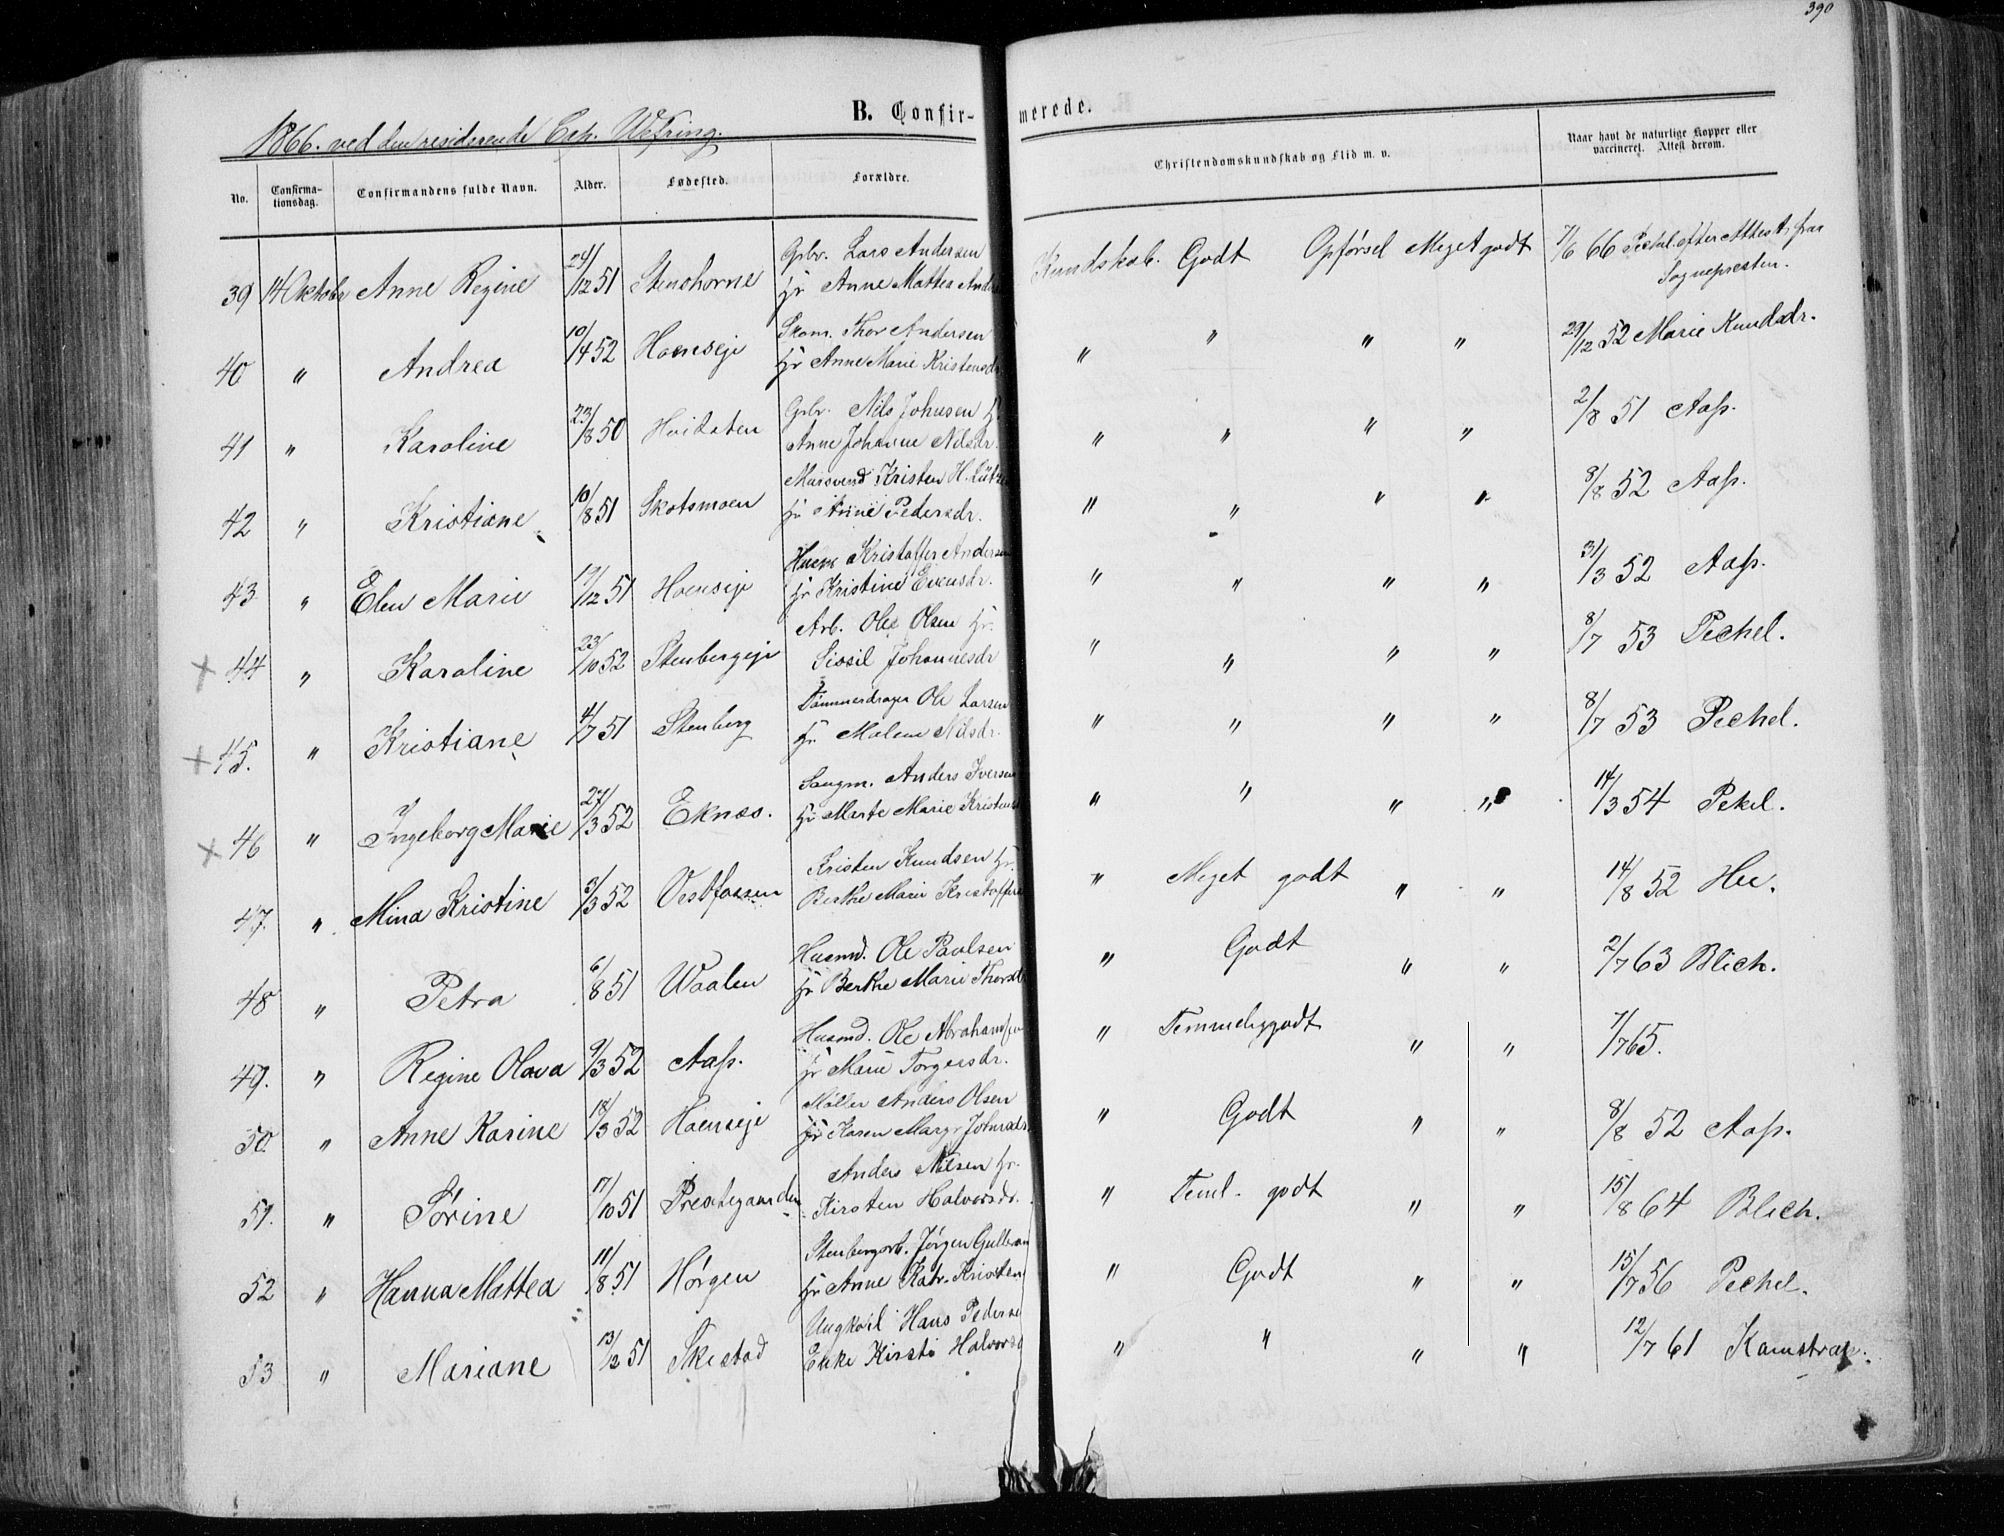 390
B. Confir- merede.
1866. ved den residerende Cap. Wetring.
No. Confirma-tionsdag. Confirmandens fulde Navn. Alder. Fødested. Forældre. Christendomskundskab og Flid m. v. Naar havt de naturlige Kopper eller vaccineret. Attest derom.
39 14 Oktober Anne Regine 24/12 51 Stenshorne Gbr. Lars Andersen Kundskab. Godt Opførsel Meget godt 7/6 66 Pechel. efter Attest fra
hr Anne Mattea Andr Sognepresten.
40 " Andrea 10/4 52 Hoenseje Skom. Thor Andersen " " " " 29/12 52 Marie Knudsdr.
hr Anne Marie Kristensdr.
41 " Karoline 23/8 50 Hvidsten Gbr. Nils Johnsen hr " " " " 2/8 51 Aass.
Anne Johanne Nilsdr.
42 " Kristiane 10/8 51 Skotsmoen Kristen H. " " " " 3/8 52 Aass.
hr Anne Pedersdr.
43 " Elen Marie 17/12 51 Hoenseje Husm Kristoffer Andersen " " " " 31/3 52 Aass.
hr Kristine Evensdr.
+ 44 " Karoline 23/10 52 Stenbergeje Arb. Ole Olsen hr. " " " " 8/7 53 Pechel.
Sissil Johannesdr
+ 45. " Kristiane 4/7 51 Stenberg Tømmerdrager Ole Larsen " " " " 8/7 53 Pechel.
hr Malene Nilsdr.
+ 46 " Ingeborg Marie 27/3 52 Eknæs. Saugm. Anders Iversen " " " " 14/3 54 Pekel.
hr Marte Marie Kristens
47. " Mina Kristine 5/3 52 Vestfossen Kristen Knudsen hr. " Meget godt " " 14/8 52 Hu.
Berthe Marie Kristoffers
48 " Petra 6/8 51 Waalen Husmd. Ole Paulsen " Godt " " 2/7 63 Blich.
hr Berthe Marie Thorsdr
49. " Regine Olava 9/3 52 Aass. Husmd. Ole Abrahamsen " Temmelig godt " " 7/7 65.
hr Marie Torgersdr.
50. " Anne Karine 18/3 52 Hoenseje Møller Anders Olsen " Godt " " 8/8 52 Aass.
hr Karen Margr. Johnsdr
51. " Sørine 17/10 51 Prestegaarden Anders Nilsen hr. " Teml. godt " " 15/8 64 Blich.
Kirsten Halvorsdr.
52 " Hanna Mattea 11/8 51 Hørgen Stenbergarb. Jørgen Gulbran " Godt " " 15/7 56 Pechel.
hr Anne Katr. Kristen
53 " Mariane 13/12 51 Skistad Ungkarl Hans Peders " " " " 12/7 61 Kamstrup.
Enke Kirsti Halvorsd